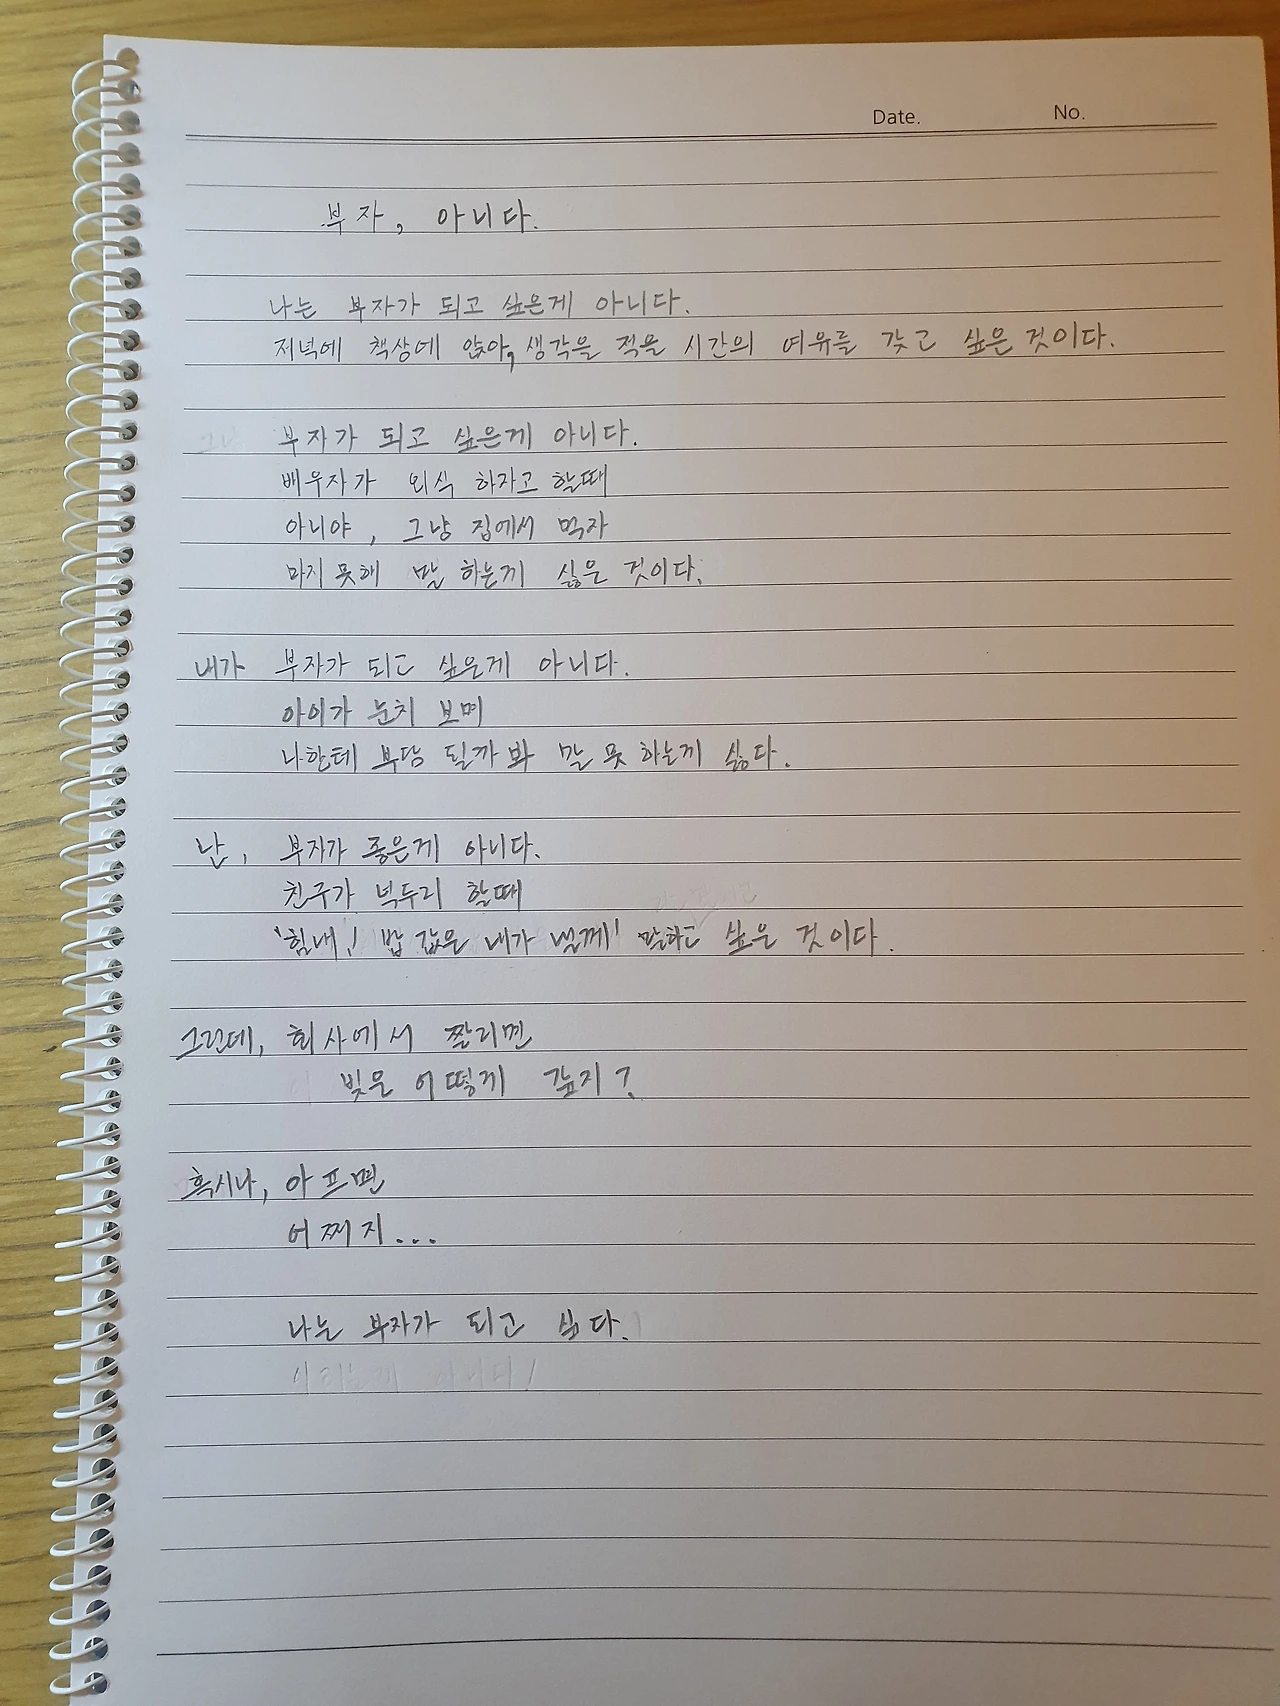 Date. No.
부자, 아니다.
나는 부자가 되고 싶은게 아니다.
저녁에 책상에 앉아, 생각을 적을 시간의 여유를 갖고 싶은 것이다.
부자가 되고 싶은게 아니다.
배우자가 외식 하자고 할때
아니야, 그냥 집에서 먹자
마지못해 말 하는게 싫은 것이다.
내가 부자가 되고 싶은게 아니다.
아이가 눈치 보며
나한테 부담 될까봐 말 못 하는게 싫다.
난, 부자가 좋은게 아니다.
친구가 넉두리 할때
'힘내! 밥 값은 내가 낼께' 말하고 싶은 것이다.
그런데, 회사에서 짤리면
빚은 어떻게 갚지?
혹시나, 아프면
어쩌지...
나는 부자가 되고 싶다.